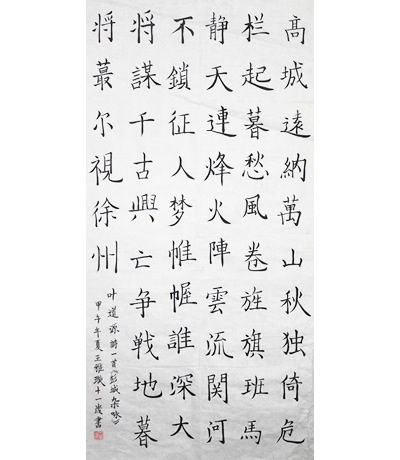 髙城遠納萬山秋独倚危
栏起暮愁風卷旌旗班馬
静天連烽火陣雲流関河
不鎖征人梦帷幄誰深大
将謀千古興亡争戦地暮
将蕞尔視徐州
叶道源詩一首《彭城杂咏》
甲午年夏王雅璇十一歳書